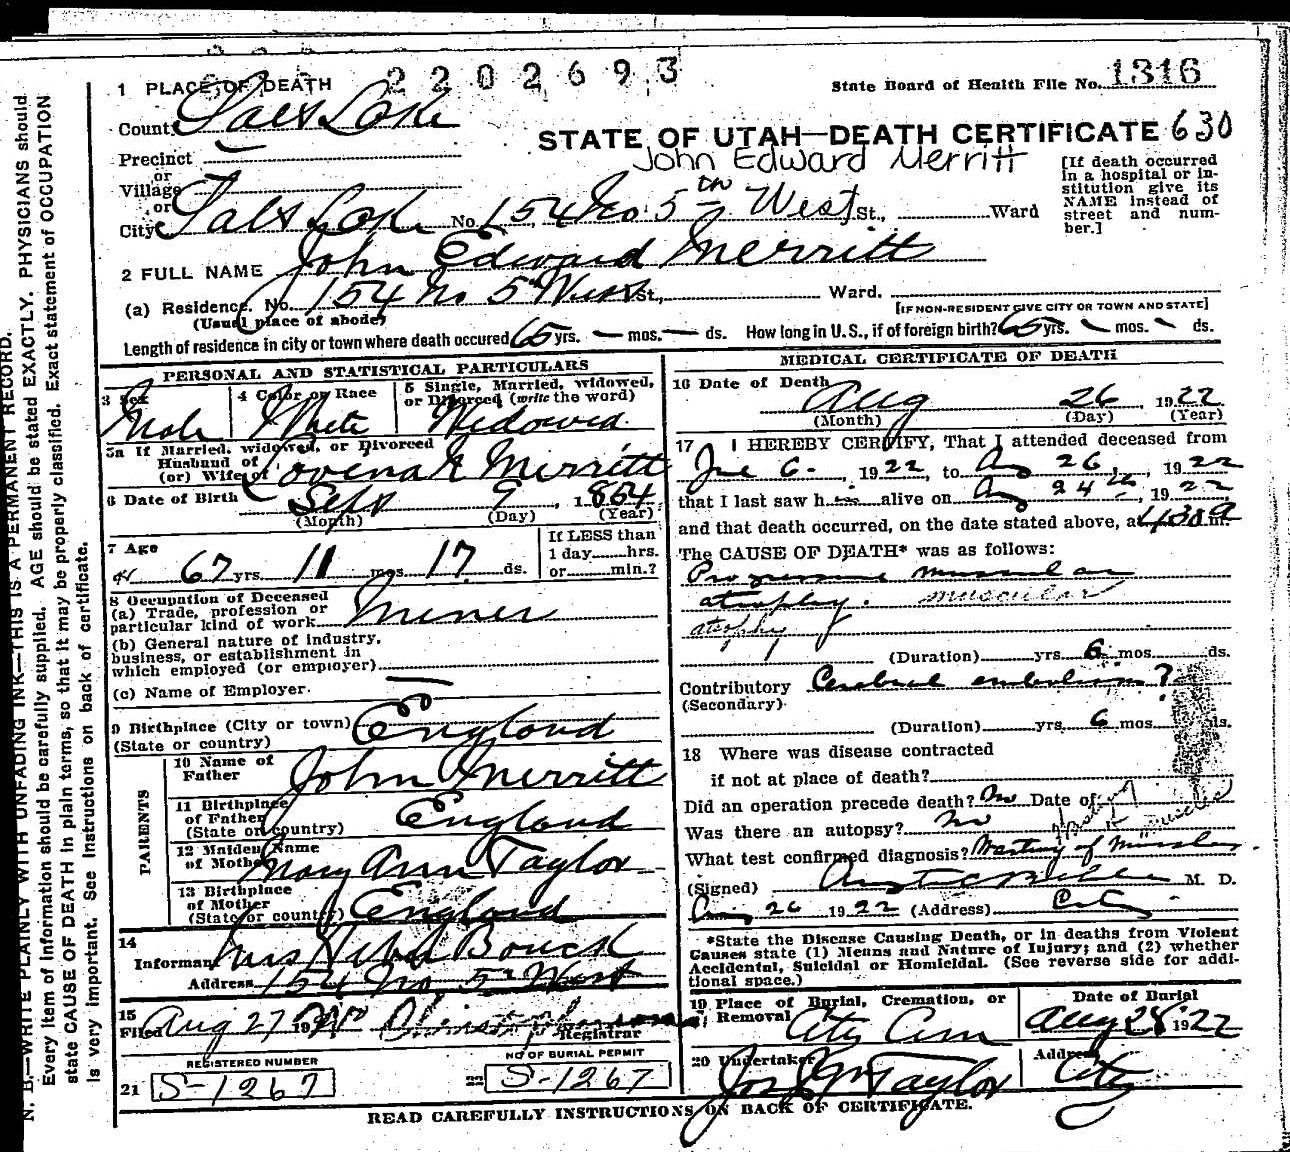 1 PLACE OF DEATH 2202693
State Board of Health File No. 1316
County Salt Lake
STATE OF UTAH—DEATH CERTIFICATE 630
Precinct
John Edward Merritt
or
Village
or
City Salt Lake No. 154 No 5th West St., Ward
[If death occurred in a hospital or institution give its NAME instead of street and number.]
2 FULL NAME John Edward Merritt
(a) Residence. No. 154 No 5 West St., Ward.
(Usual place of abode)
[IF NON-RESIDENT GIVE CITY OR TOWN AND STATE]
Length of residence in city or town where death occured 65 yrs. — mos. — ds. How long in U.S., if of foreign birth? 65 yrs. — mos. — ds.
PERSONAL AND STATISTICAL PARTICULARS
3 Sex Male
4 Color or Race White
5 Single, Married, widowed, or Divorced (write the word) Widowed.
5a If Married, widowed, or Divorced
Husband of
(or) Wife of Merritt
6 Date of Birth Sept 9, 1854
(Month) (Day) (Year)
7 Age 67 yrs. 11 mos. 17 ds.
If LESS than
1 day hrs.
or min.?
8 Occupation of Deceased
(a) Trade, profession or
particular kind of work Miner
(b) General nature of industry,
business, or establishment in
which employed (or employer)
(c) Name of Employer.
9 Birthplace (City or town)
(State or country) England
PARENTS
10 Name of Father John Merritt
11 Birthplace of Father (State or country) England
12 Maiden Name of Mother Mary Ann Taylor
13 Birthplace of Mother (State or country) England
14
Informant Mrs Bouck
Address 154 No 5 West
15
Filed Aug 27 1922
Registrar
REGISTERED NUMBER
21 S-1267
NO OF BURIAL PERMIT
22 S-1267
MEDICAL CERTIFICATE OF DEATH
16 Date of Death Aug 26, 1922
(Month) (Day) (Year)
17 I HEREBY CERTIFY, That I attended deceased from
6. , 1922, to Aug 26, , 1922
that I last saw h im alive on Aug 24th, 1922
and that death occurred, on the date stated above, at 430 a m.
The CAUSE OF DEATH* was as follows:
Progressive muscular
atrophy. muscular
atrophy
(Duration) yrs. 6 mos. ds.
Contributory Cerebral embolism?
(Secondary)
(Duration) yrs. 6 mos. ds.
18 Where was disease contracted
if not at place of death?
Did an operation precede death? No Date of
Was there an autopsy? No
What test confirmed diagnosis? Wasting of Muscles.
(Signed) M. D.
Aug 26 1922 (Address) City
*State the Disease Causing Death, or in deaths from Violent
Causes state (1) Means and Nature of Injury; and (2) whether
Accidental, Suicidal or Homicidal. (See reverse side for additional space.)
19 Place of Burial, Cremation, or Removal City Cem
Date of Burial Aug 28 1922
20 Undertaker Jos Wm Taylor
Address City
READ CAREFULLY INSTRUCTIONS ON BACK OF CERTIFICATE.
N. B.—WRITE PLAINLY WITH UNFADING INK—THIS IS A PERMANENT RECORD.
Every item of information should be carefully supplied. AGE should be stated EXACTLY. PHYSICIANS should
state CAUSE OF DEATH in plain terms, so that it may be properly classified. Exact statement of OCCUPATION
is very important. See instructions on back of certificate.